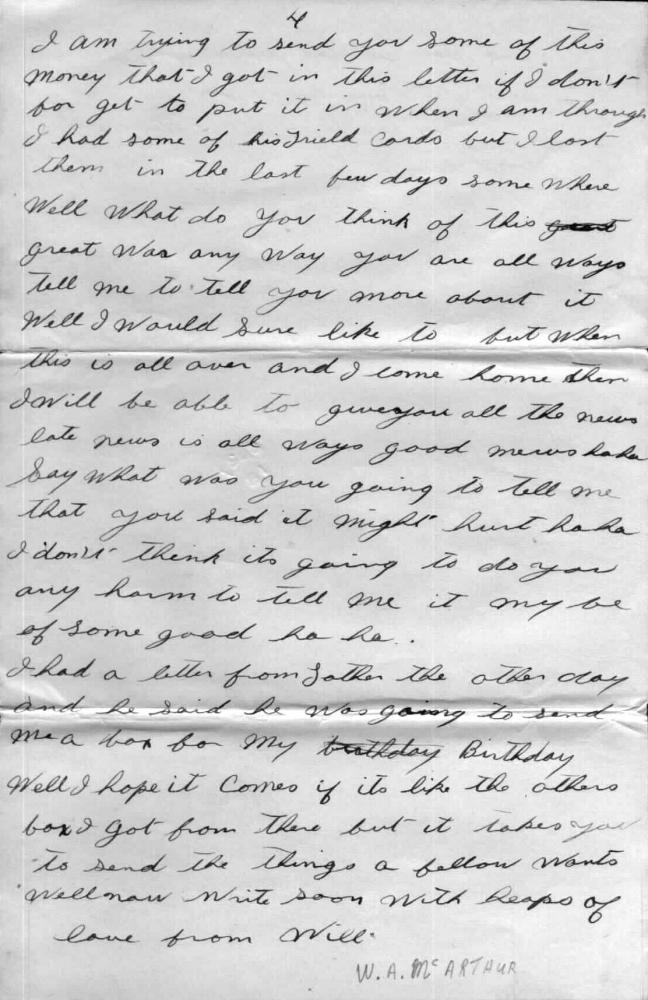 4
I am trying to send you some of this
money that I got in this letter if I don't
for get to put it in when I am through
I had some of his Field Cards but I lost
them in the last few days some where
Well What do you think of this great
great War any Way you are all ways
tell me to tell you more about it
Well I Would Sure like to but when
this is all over and I come home then
I Will be able to give you all the news
late news is all ways good news haha
Say What was you going to tell me
that you said it might hurt ha ha
I don't think its going to do you
any harm to tell me it my be
of some good ha ha.
I had a letter from Father the other day
and he said he was going to send
me a box for My birthday Birthday
Well I hope it Comes if its like the others
box I got from there but it takes you
to send the things a fellow wants
Well now Write soon With heaps of
love from Will.
W. A. McARTHUR